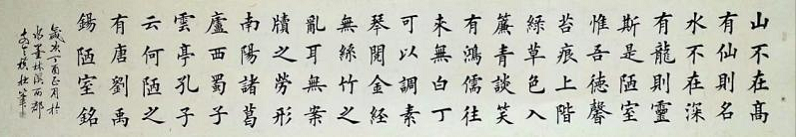 山不在高
有仙則名
水不在深
有龍則靈
斯是陋室
惟吾徳馨
苔痕上階
綠草色入
簾青談笑
有鴻儒往
来無白丁
可以調素
琴閱金経
無絲竹之
亂耳無案
牘之勞形
南陽諸葛
廬西蜀子
雲亭孔子
云何陋之
有唐劉禹
錫陋室銘
歲次丁酉正月於